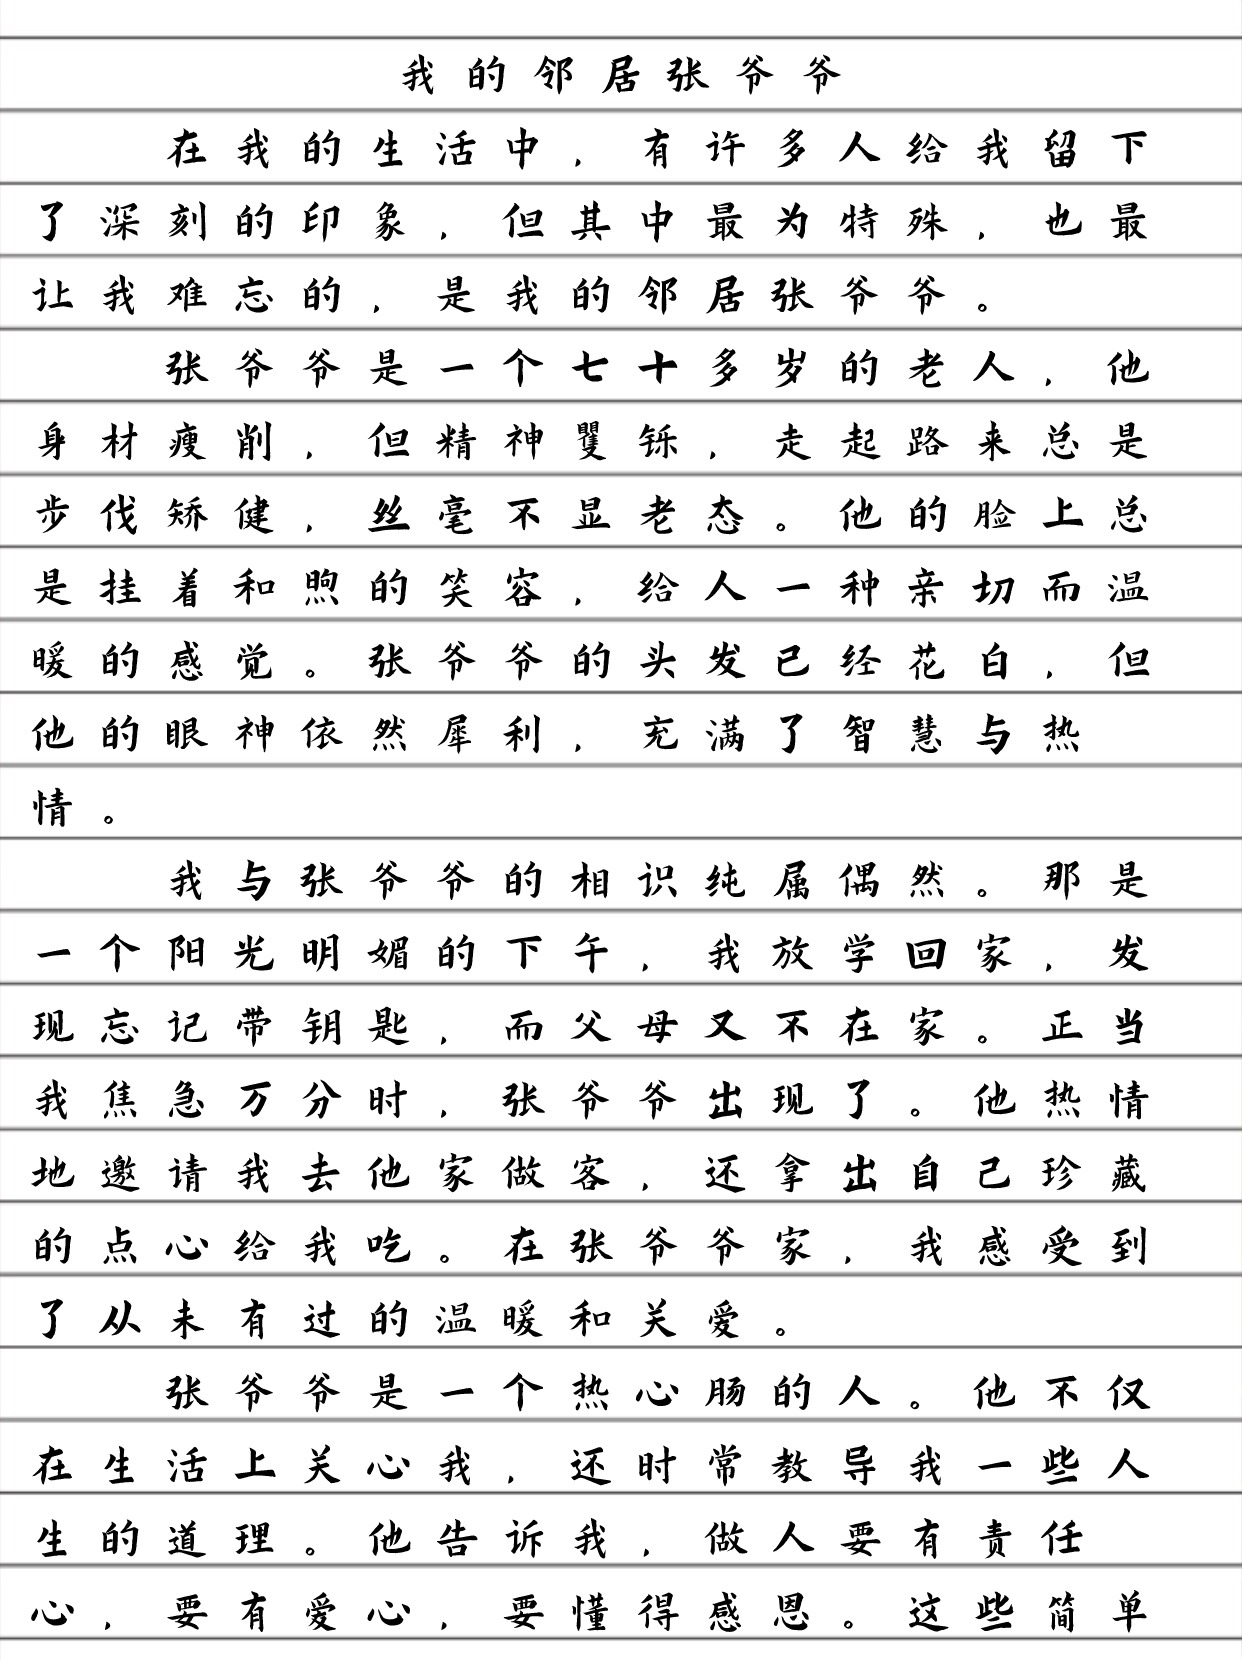 我的邻居张爷爷
在我的生活中，有许多人给我留下
了深刻的印象，但其中最为特殊，也最
让我难忘的，是我的邻居张爷爷。
张爷爷是一个七十多岁的老人，他
身材瘦削，但精神矍铄，走起路来总是
步伐矫健，丝毫不显老态。他的脸上总
是挂着和煦的笑容，给人一种亲切而温
暖的感觉。张爷爷的头发已经花白，但
他的眼神依然犀利，充满了智慧与热
情。
我与张爷爷的相识纯属偶然。那是
一个阳光明媚的下午，我放学回家，发
现忘记带钥匙，而父母又不在家。正当
我焦急万分时，张爷爷出现了。他热情
地邀请我去他家做客，还拿出自己珍藏
的点心给我吃。在张爷爷家，我感受到
了从未有过的温暖和关爱。
张爷爷是一个热心肠的人。他不仅
在生活上关心我，还时常教导我一些人
生的道理。他告诉我，做人要有责任
心，要有爱心，要懂得感恩。这些简单